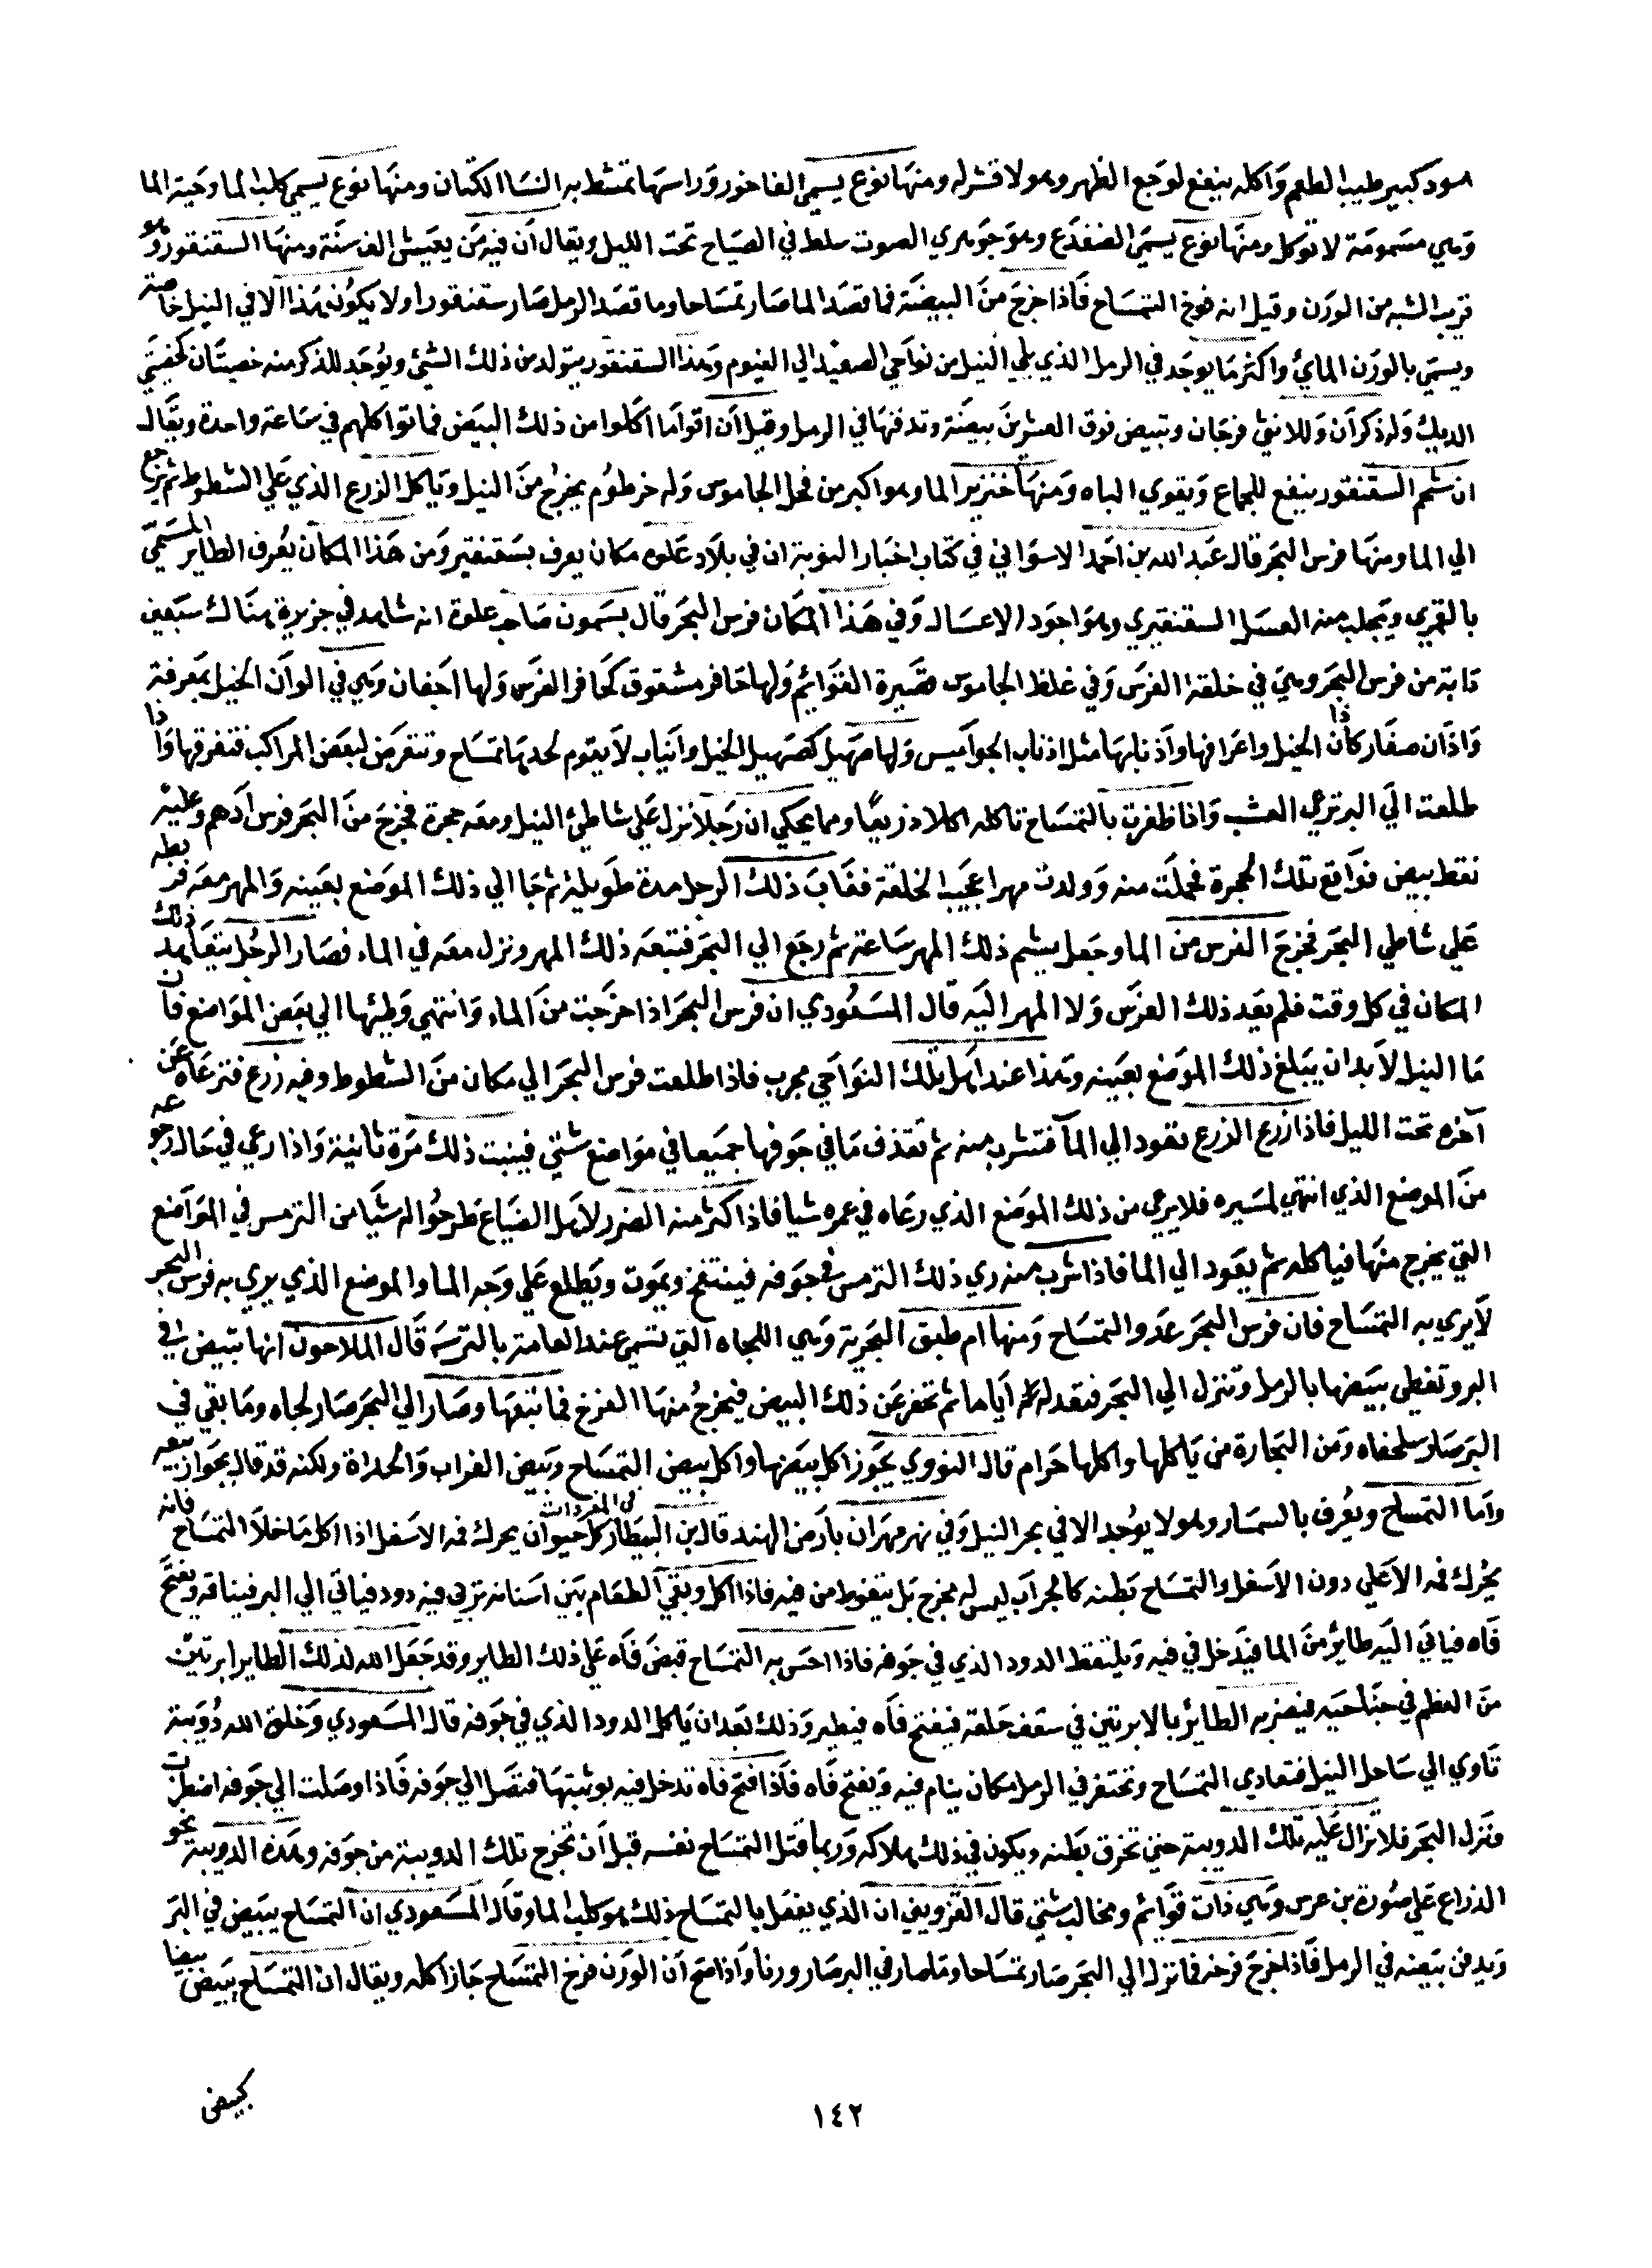 اسود كبير طيب الطعم واكله ينفع لوجع الظهر وهو لا قشر له ومنها نوع يسمي الفاخور وراسها تمشط به النسا الكتان ومنها نوع يسمي كلب الما وحية الما
وهي مسمومة لا توكل ومنها نوع يسمي الضفدع وهو جوهري الصوت سلط في الصياح تحت الليل ويقال ان فيه من يعيش الف سنة ومنها السقنقور وهو
قريب الشبه من الورن وقيل انه فرخ التمساح فاذا خرج من البيضة فما قصد الما صار تمساحا وما قصد الرمل صار سقنقورا ولا يكون هذا الا في النيل خاصة
ويسمي بالورن المائ واكثر ما يوجد في الرمل الذي يلي النيل من نواحي الصعيد الي الفيوم وهذا السقنقور يتولد من ذلك الشئ ويوجد للذكر منه خصيتان كخصيتي
الديك وله ذكران وللانثي فرجان وتبيض فوق العشرين بيضة وتدفنها في الرمل وقيل ان اقواما اكلوا من ذلك البيض فماتوا كلهم في ساعة واحدة ويقال
ان شحم السقنقور ينفع للجماع ويقوي الباه ومنها خنزير الما وهو اكبر من فحل الجاموس وله خرطوم يخرج من النيل وياكل الزرع الذي علي الشطوط ثم يرجع
الي الما ومنها فرس البحر قال عبد الله بن احمد الاسواني في كتاب اخبار النوبة ان في بلاد علوه مكان يعرف بسقنقير ومن هذا المكان يعرف الطاير المسمي
بالقمري ويجلب منه العسل السقنقيري وهو اجود الاعسال وفي هذا المكان فرس البحر قال بسمون صاحب علوة انه شاهد في جزيرة هناك سبعين
دابة من فرس البحر وهي في خلقة الفرس وفي غلظ الجاموس قصيرة القوائم ولها حافر مشقوق كحافر الفرس ولها احفان وهي في الوان الخيل بمعرفة
واذان صغار كاذان الخيل واعرافها واذنابها مثل اذناب الجواميس ولها صهيل كصهيل الخيل وانياب لا يقوم لحدها تمساح وتتعرض لبعض المراكب فتغرقها واذا
طلعت الي البر ترعي العشب واذا ظفرت بالتمساح تاكله اكلا ذريعا ومما يحكي ان رجلا نزل علي شاطئ النيل ومعه حجرة فخرج من البحر فرس ادهم وعليه
نقط بيض فواقع تلك الحجرة فحملت منه وولدت مهرا عجيب الخلقة فغاب ذلك الرجل مدة طويلة ثم جا الي ذلك الموضع بعينه والمهر معه فربطه
علي شاطي البحر فخرج الفرس من الما وجعل يشم ذلك المهر ساعة ثم رجع الي البحر فتبعه ذلك المهر ونزل معه في الماء فصار الرجل يتعاهد ذلك
المكان في كل وقت فلم يعد ذلك الفرس ولا المهر اليه قال المسعودي ان فرس البحر اذا خرجت من الماء وانتهي وطئها الي بعض المواضع فان
ما النيل لا بد ان يبلغ ذلك الموضع بعينه وهذا عند اهل تلك النواحي مجرب فاذا طلعت فرس البحر الي مكان من الشطوط وفيه زرع فترعاه عن
آخره تحت الليل فاذا زرع الزرع تعود الي المآ فتشرب منه ثم تقذف ما في جوفها جميعا في مواضع شتي فينبت ذلك مرة ثانية واذا رعي في حال رجوعه
من الموضع الذي انتهي لمسيره فلا يرعي من ذلك الموضع الذي رعاه في عمره شيا فاذا كثر منه الضرر لاهل الضياع طرحوا له شيا من الترمس في المواضع
التي يخرج منها فياكله ثم يعود الي الما فاذا شرب منه ربي ذلك الترمس في جوفه فينتفخ ويموت ويطلع علي وجه الما والموضع الذي يري به فرس البحر
لا يري به التمساح فان فرس البحر عدو التمساح ومنها ام طبق البحرية وهي اللجاه التي تسمي عند العامة بالترسة قال الملاحون انها تبيض في
البر وتغطي بيضها بالرمل وتنزل الي البحر فتعد له اياما ثم تحفر عن ذلك البيض فيخرج منها الفرخ فما تبعها وصار الي البحر صار لجاه وما بقي في
البر صار سلحفاه ومن البحارة من ياكلها واكلها حرام قال النووي يجوز اكل بيضها واكل بيض التمساح وبيض الغراب والحداة ولكنه قد قال بجواز بيعه
واما التمساح ويعرف بالسمسار وهو لا يوجد الا في بحر النيل وفي نهر مهران بارض الهند قال بن البيطار في المفردات كل حيوان يحرك فمه الاسفل اذا اكل ما خلا التمساح فانه
يحرك فمه الاعلي دون الاسفل والتمساح بطنه كالجراب ليس له مخرج بل يتغوط من فيه فاذا اكل وبقي الطعام بين اسنانه تربي فيه دود فياتي الي البر فينام فيه ويفتح
فاه فياتي اليه طاير من الما فيدخل في فيه ويلتقط الدود الذي في جوفه فاذا احس به التمساح قبض فاه علي ذلك الطاير وقد جعل الله لذلك الطاير ابرتين
من العظم في جناحيه فيضربه الطائر بالابرتين في سقف حلقه فيفتح فاه فيطير وذلك بعد ان ياكل الدود الذي في جوفه قال المسعودي وخلق الله دويبة
تاوي الي ساحل النيل فتعادي التمساح وتحتفر في الرمل مكان ينام فيه ويفتح فاه فاذا فتح فاه تدخل فيه بوثبتها فتصل الي جوفه فاذا وصلت الي جوفه اضطرب
ونزل البحر فلا تزال عليه تلك الدويبة حتي تخرق بطنه ويكون في ذلك هلاكه وربما قتل التمساح نفسه قبل ان تخرج تلك الدويبة من جوفه وهذه الدويبة نحو
الذراع علي صورة بن عرس وهي ذات قوائم ومخالب شتي قال القزويني ان الذي يفعل بالتمساح ذلك هو كلب الما وقال المسعودي ان التمساح يبيض في البر
ويدفن بيضه في الرمل فاذا خرج فرخه فما نزل الي البحر صار تمساحا وما صار في البر صار ورنا واذا صح ان الورن فرخ التمساح جاز اكله ويقال ان التمساح يبيض بيضا
كبيض
١٤٢